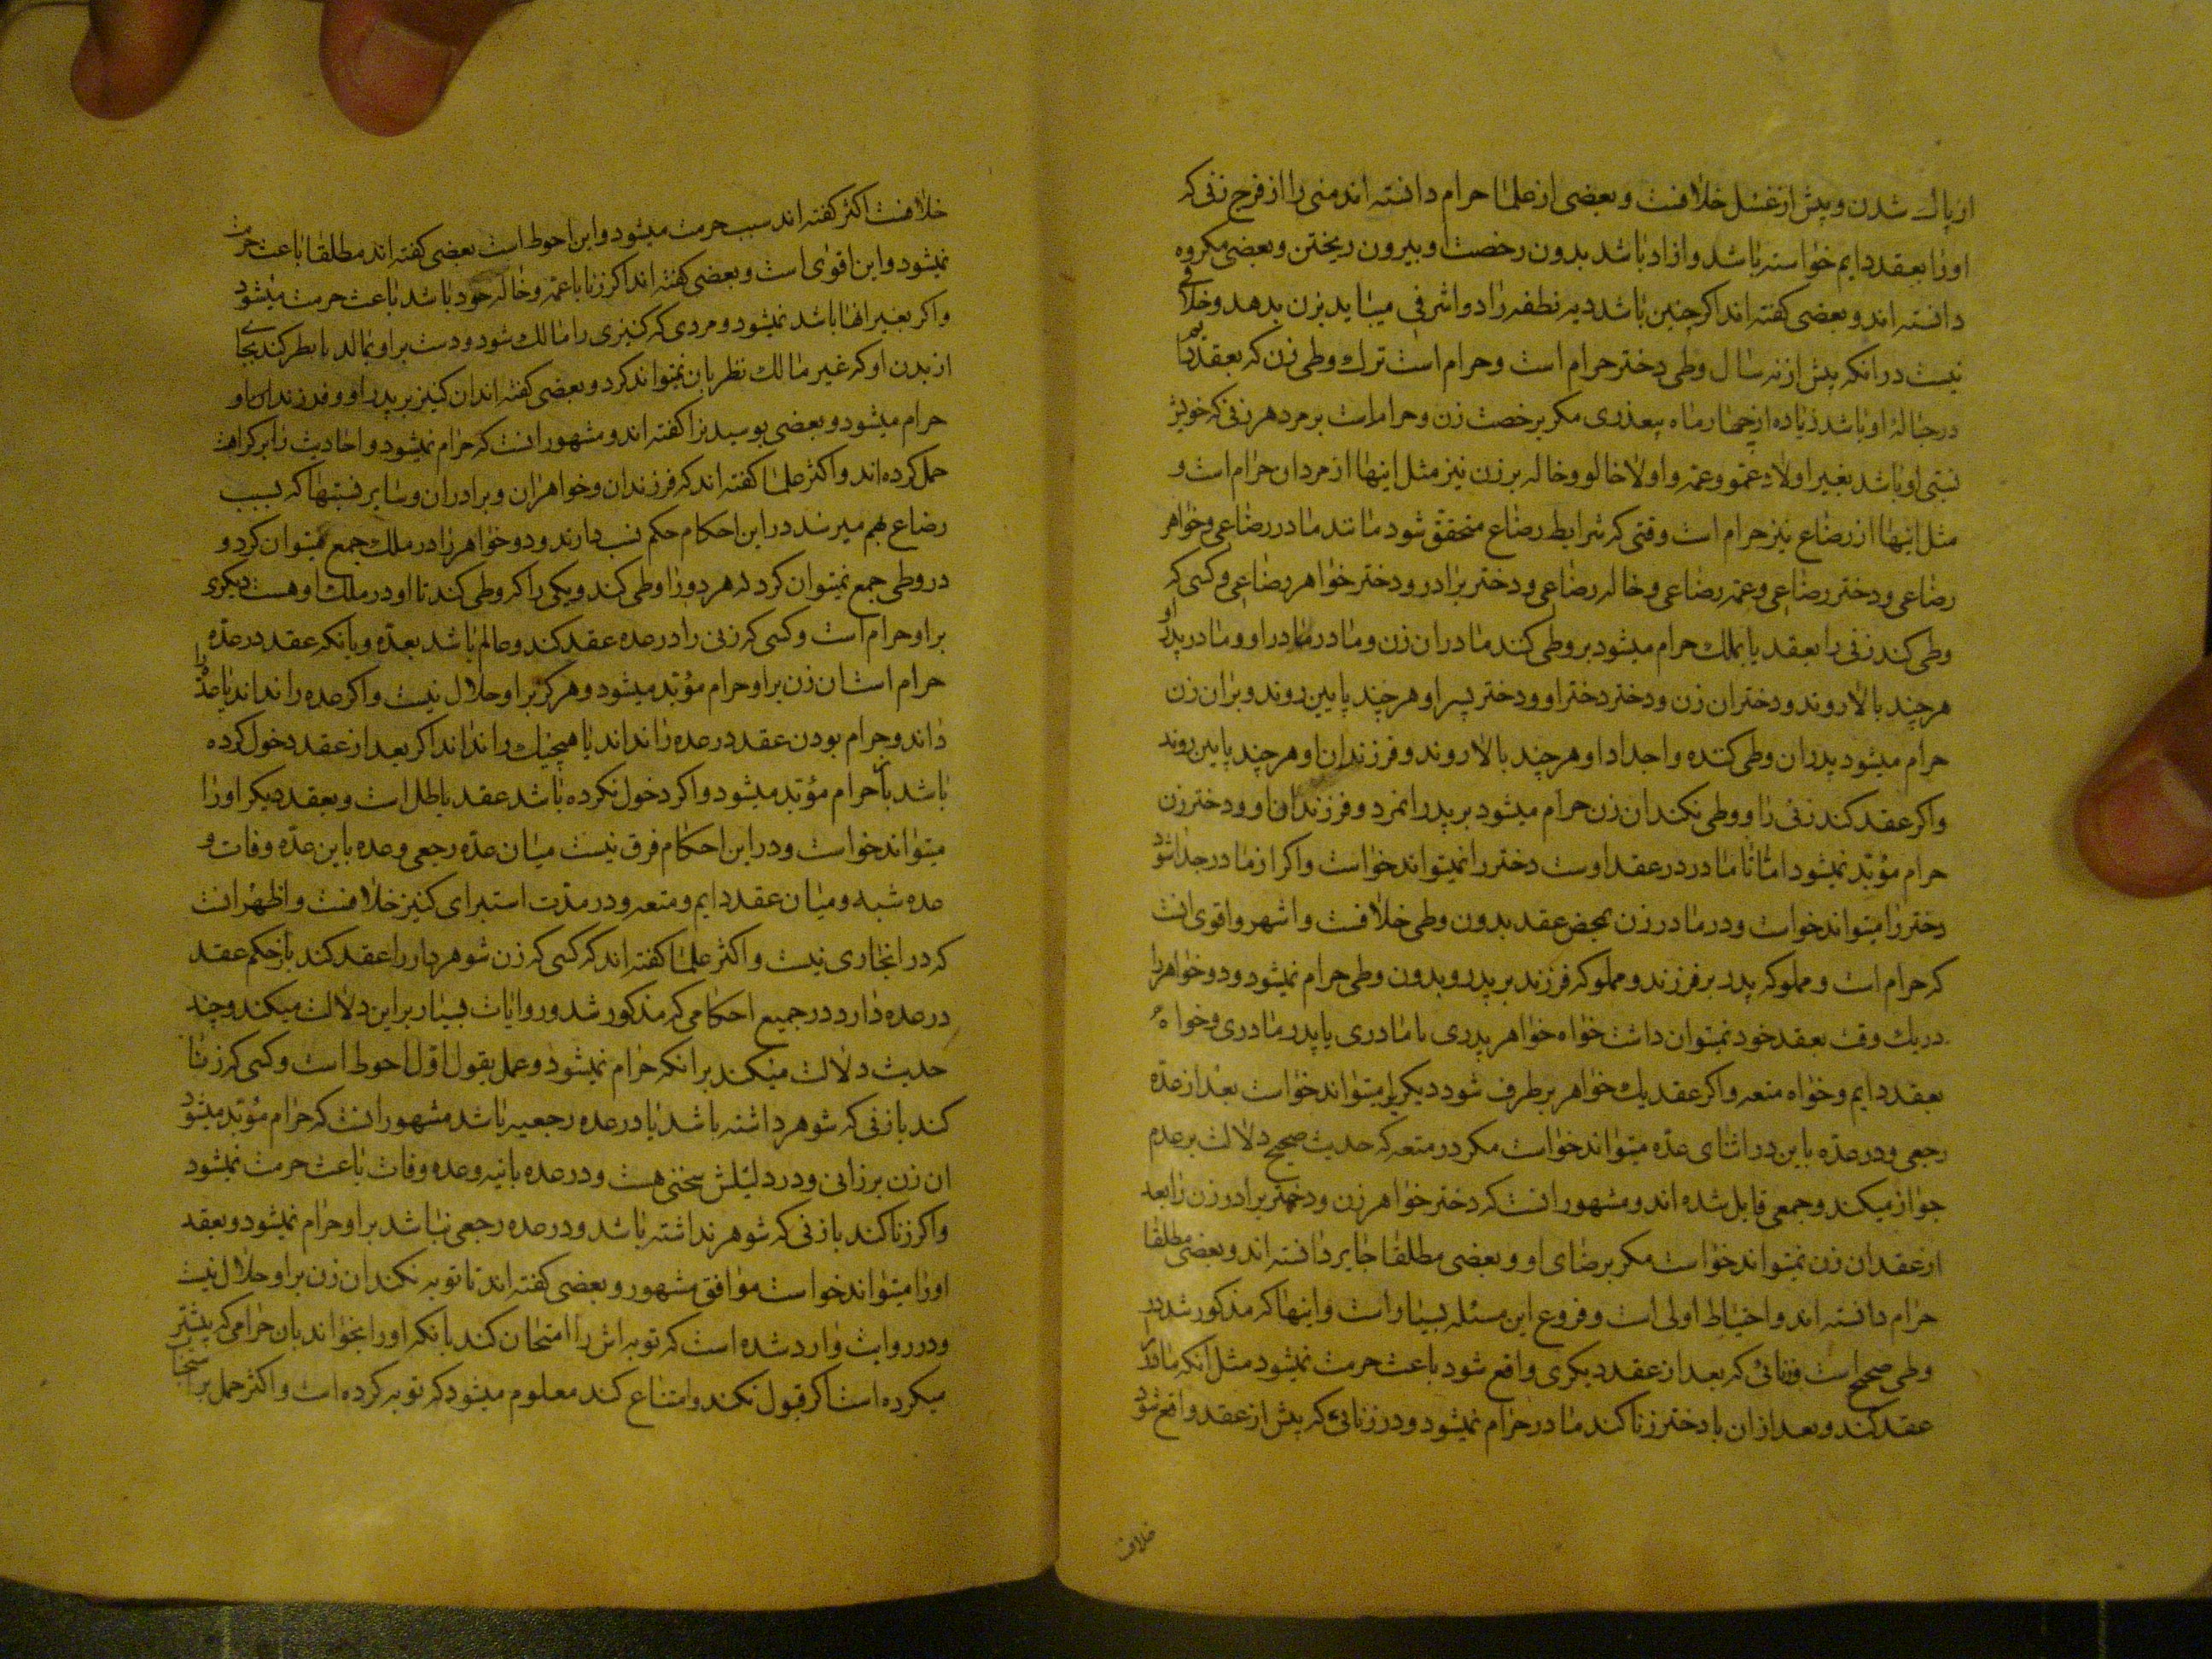 از پاك شدن و پیش از غسل خلافست و بعضی از علما حرام دانسته اند منی را از فرج زنی که
او را بعقد دایم خواسته باشد و ازاد باشد بدون رخصت او بیرون ریختن و بعضی مکروه
دانسته اند و بعضی کفته اند اکر چنین باشد دیه نطفه را ده اشرفی میباید بزن بدهد و خلافی
نیست در انکه پیش از نه سال وطی دختر حرام است و حرام است ترك وطی زن که بعقد دایم
در حباله او باشد زیاده از چهار ماه بیعذری مکر برخصت زن و حرام است بر مرد هر زنی که خویش
نسبتی او باشد بغیر اولاد عمو و عمه و اولاد خالو و خاله بر زن نیز مثل اینها از مردان حرام است و
مثل اینها از رضاع نیز حرام است وقتی که شرایط رضاع متحقق شود مانند مادر رضاعی و خواهر
رضاعی و دختر رضاعی و عمه رضاعی و خاله رضاعی و دختر برادر و دختر خواهر رضاعی و کسی که
وطی کند زنی را بعقد یا بملك حرام میشود بر وطی کننده مادر ان زن و مادر مادر او و مادر پدر او
هر چند بالا روند و دختران زن و دختر دختر او و دختر پسر او هر چند پایین روند و بران زن
حرام میشود پدران وطی کننده و اجداد او هر چند بالا روند و فرزندان او هر چند پایین روند
و اکر عقد کند زنی را و وطی نکند ان زن حرام میشود بر پدر انمرد و فرزندان او و دختر زن
حرام مؤبد نمیشود اما تا مادر در عقد اوست دختر را نمیتواند خواست و اکر از مادر جدا شود
دختر را میتواند خواست و در مادر زن بمحض عقد بدون وطی خلافست و اشهر و اقوی انست
که حرام است و مملوکه پدر بر فرزند و مملوکه فرزند بر پدر و بدون وطی حرام نمیشود و دو خواهر را
در یك وقت بعقد خود نمیتوان داشت خواه خواهر پدری یا مادری یا پدر مادری و خواه
بعقد دایم و خواه متعه و اکر عقد یك خواهر بر طرف شود دیکریرا میتواند خواست بعد از عده
رجعی و در عده باین در اثنای عده میتواند خواست مکر در متعه که حدیث صحیح دلالت بر عدم
جواز میکند و جمعی قایل شده اند و مشهور انست که دختر خواهر زن و دختر برادر زن را بعد
از عقد ان زن نمیتواند خواست مکر برضای او و بعضی مطلقا جایر دانسته اند و بعضی مطلقا
حرام دانسته اند و احتیاط اولی است و فروع این مسئله بسیار است و اینها که مذکور شد در
وطی صحیح است و زنائی که بعد از عقد دیکری واقع شود باعث حرمت نمیشود مثل انکه مادر را
عقد کند و بعد از ان با دختر زنا کند مادر حرام نمیشود و در زنائی که پیش از عقد واقع شود
خلاف
خلافست اکثر کفته اند سبب حرمت میشود و این احوط است بعضی کفته اند مطلقا باعث حرمت
نمیشود و این اقوی است و بعضی کفته اند اکر زنا با عمه و خاله خود باشد باعث حرمت میشود
و اکر بغیر انها باشد نمیشود و مردی که کنیزی را مالك شود و دست بر او بمالد یا نظر کند بجائی
از بدن او که غیر مالك نظر بان نمیتواند کرد و بعضی کفته اند ان کنیز بر پدر او و فرزندان او
حرام میشود و بعضی بوسیدنرا کفته اند و مشهور انست که حرام نمیشود و احادیث را بر کراهت
حمل کرده اند و اکثر علما کفته اند که فرزندان و خواهران و برادران و سایر نسبتها که بسبب
رضاع بهم میرسد در این احکام حکم نسب دارند و دو خواهر را در ملك جمع میتوان کرد و
در وطی جمع نمیتوان کرد که هر دو را وطی کند و یکی را که وطی کند تا او در ملك او هست دیکری
بر او حرام است و کسی که زنی را در عده عقد کند و عالم باشد بعده و بانکه عقد در عده
حرام است ان زن بر او حرام مؤبد میشود و هر کز بر او حلال نیست و اکر عده را نداند یا عده را
داند و حرام بودن عقد در عده را نداند یا هیچیك را نداند اکر بعد از عقد دخول کرده
باشد باز حرام مؤبد میشود و اکر دخول نکرده باشد عقد باطل است و بعقد دیکر او را
میتواند خواست و در این احکام فرق نیست میان عده رجعی و عده باین عده وفات و
عده شبه و میان عقد دایم و متعه و در مدت استبرای کنیز خلافست و اظهر انست
که در انجاری نیست و اکثر علما کفته اند که کسی که زن شوهر دار را عقد کند باز حکم عقد
در عده دارد در جمیع احکامی که مذکور شد و روایات بسیار بر این دلالت میکند و چند
حدیث دلالت میکند بر انکه حرام نمیشود و عمل بقول اول احوط است و کسی که زنا
کند با زنی که شوهر داشته باشد یا در عده رجعیه باشد مشهور انست که حرام مؤبد میشود
ان زن بر زانی و در دلیلش سخنی هست و در عده باینه و عده وفات باعث حرمت نمیشود
و اکر زنا کند با زنی که شوهر نداشته باشد و در عده رجعی نباشد بر او حرام نمیشود و بعقد
او را میتواند خواست موافق مشهور و بعضی کفته اند تا توبه نکند ان زن بر او حلال نیست
و در روایت وارد شده است که توبه اش را امتحان کند بانکه او را بخواند بان حرامی که پیشتر
میکرده است اکر قبول نکند و امتناع کند معلوم میشود که توبه کرده است و اکثر حمل بر